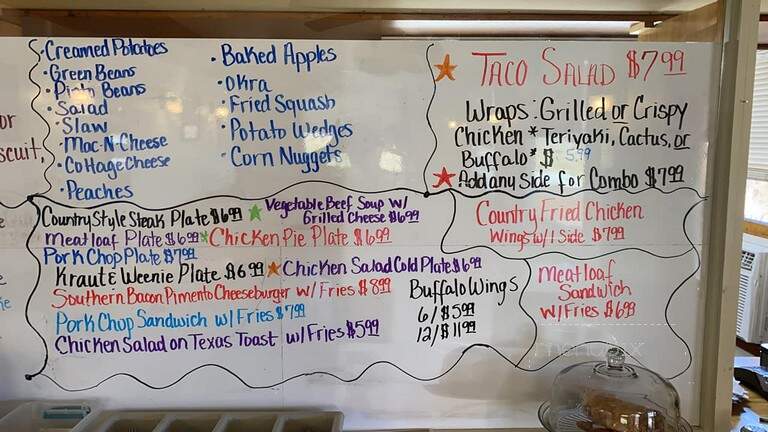 Creamed Potatoes
Green Beans
Pinto Beans
Salad
Slaw
Mac-N-Cheese
Cottage Cheese
Peaches
Baked Apples
Okra
Fried Squash
Potato Wedges
Corn Nuggets
Taco Salad $7.99
Wraps: Grilled or Crispy
Chicken * Teriyaki, Cactus, or
Buffalo * $ 5.99
Add any Side for Combo $7.99
or
scuit,
Country Style Steak Plate $6.99
Vegetable Beef Soup w/
Grilled Cheese $6.99
Meatloaf Plate $6.99
Chicken Pie Plate $6.99
Pork Chop Plate $7.99
Kraut & Weenie Plate $6.99
Chicken Salad Cold Plate $6.99
Southern Bacon Pimento Cheeseburger w/ Fries $8.99
Pork Chop Sandwich w/ Fries $7.99
Chicken Salad on Texas Toast w/ Fries $5.99
Buffalo Wings
6/$5.99
12/$11.99
Country Fried Chicken
Wings w/ 1 Side $7.99
Meatloaf
Sandwich
w/ Fries $6.99